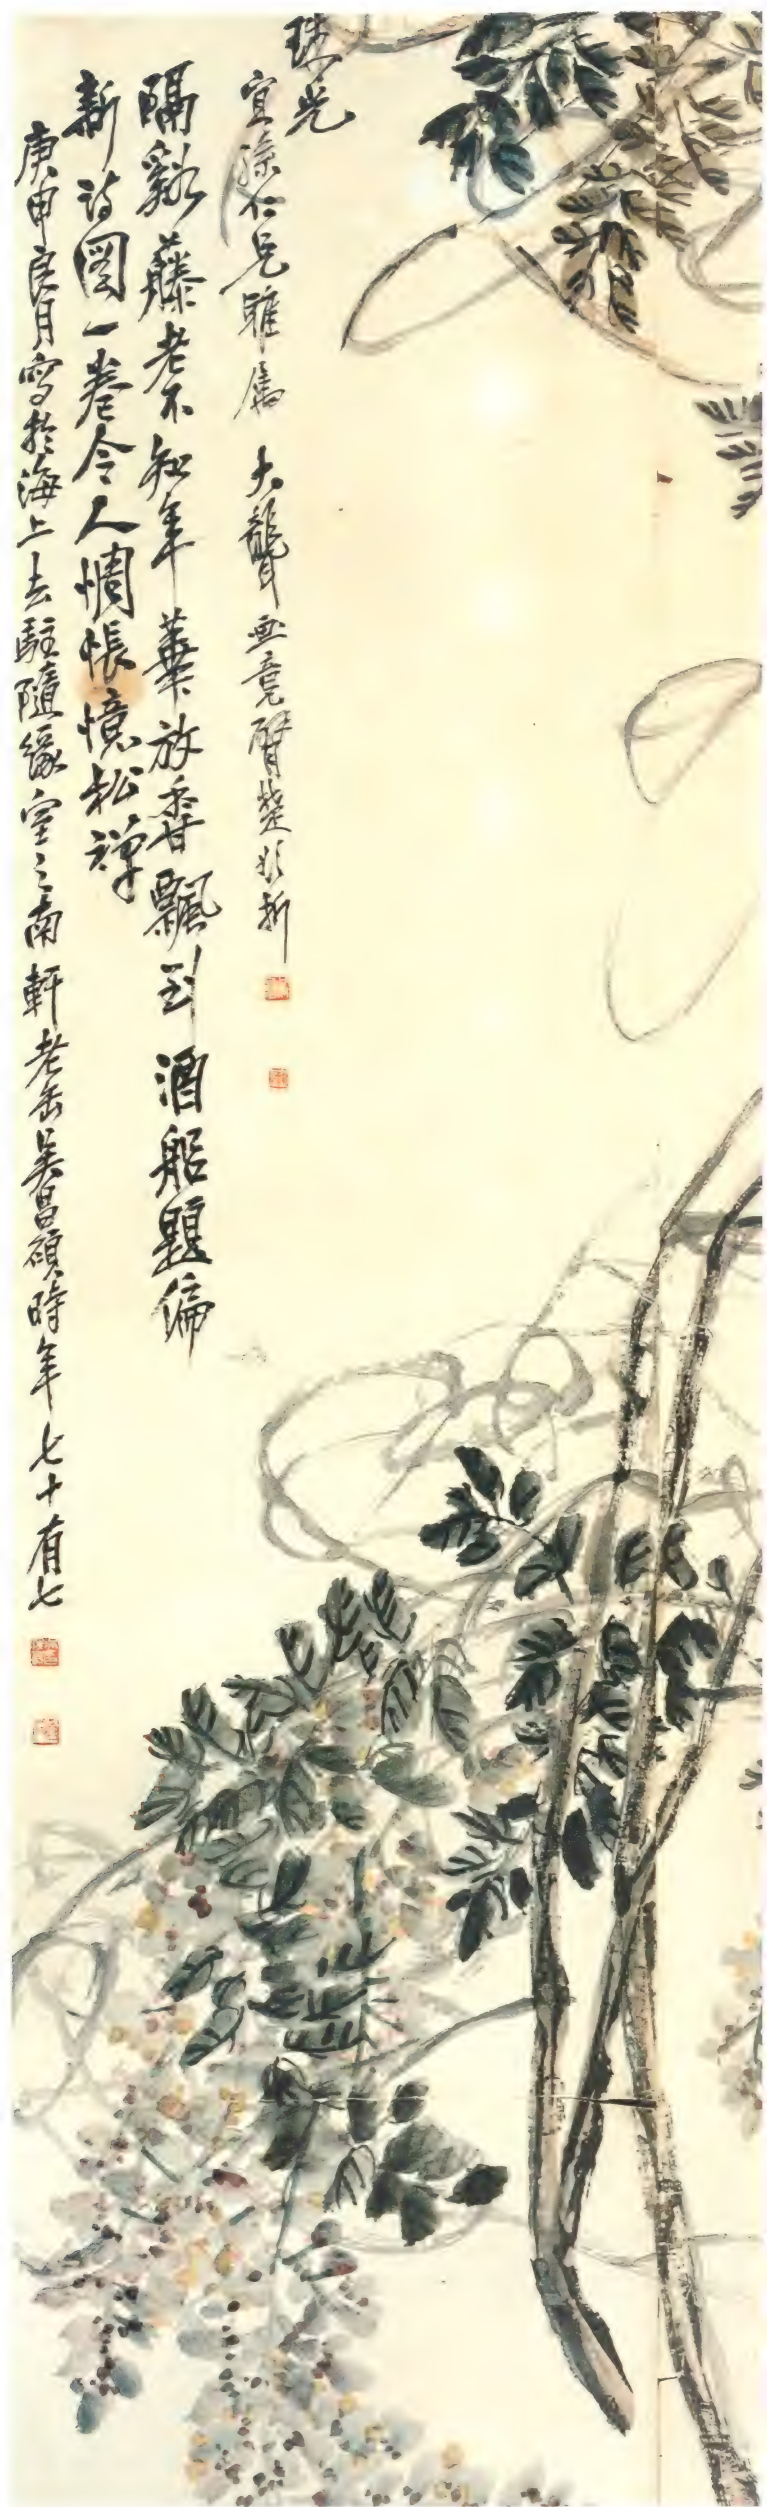 珠光
宜孫仁兄雅屬 大聾 畫竟臂楚欲折
隔谿藤老不知年華放香飄到酒船題徧
新詩圖一卷令人惆悵憶松禪
庚申良月寫於海上去駐隨緣室之南軒老缶吳昌碩時年七十有七